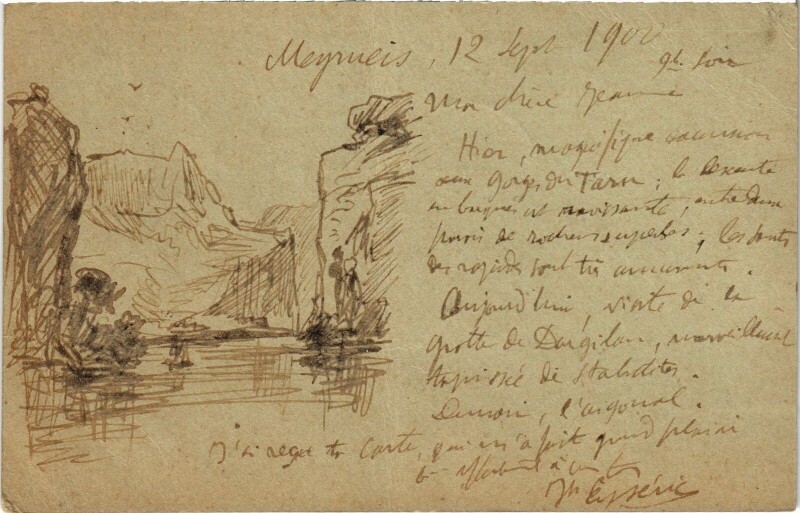 Meyrueis, 12 Sept 1900
9h. soir
Ma chère Jeanne
Hier, magnifique excursion
aux gorges du Tarn ; la descente
en barques est ravissante, entre deux
parois de rochers superbes ; les sauts
des rapides sont très amusants.
Aujourd'hui, visite de la
grotte de Dargilan, merveilleuse
tapissée de stalactites.
Demain, l'aigoual.
J'ai reçu ta carte, qui m'a fait grand plaisir
à